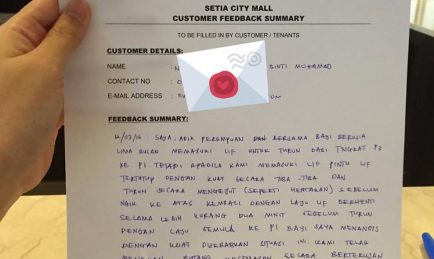 SETIA CITY MALL
CUSTOMER FEEDBACK SUMMARY
TO BE FILLED IN BY CUSTOMER / TENANTS
CUSTOMER DETAILS:
NAME : N BINTI MOHAMAD
CONTACT NO :
E-MAIL ADDRESS :
FEEDBACK SUMMARY:
12/03/16 : SAYA, ADIK PEREMPUAN DAN BERSAMA BAYI BERUSIA
LIMA BULAN MEMASUKI LIF UNTUK TURUN DARI TINGKAT P3
KE P1. TETAPI APABILA KAMI MEMASUKI LIF PINTU LIF
TERTUTUP DENGAN KUAT SECARA TIBA-TIBA DAN
TURUN SECARA MENGEJUT (SEPERTI HENTAKAN) SEBELUM
NAIK KE ATAS KEMBALI DENGAN LAJU LIF BERHENTI
SELAMA LEBIH KURANG DUA MINIT SEBELUM TURUN
DENGAN LAJU SEMULA KE P1. BAYI SAYA MENANGIS
DENGAN KUAT SITUASI INI. KAMI TELAH
MENEKAN BUTANG KECEMASAN SECARA BERTERUSAN